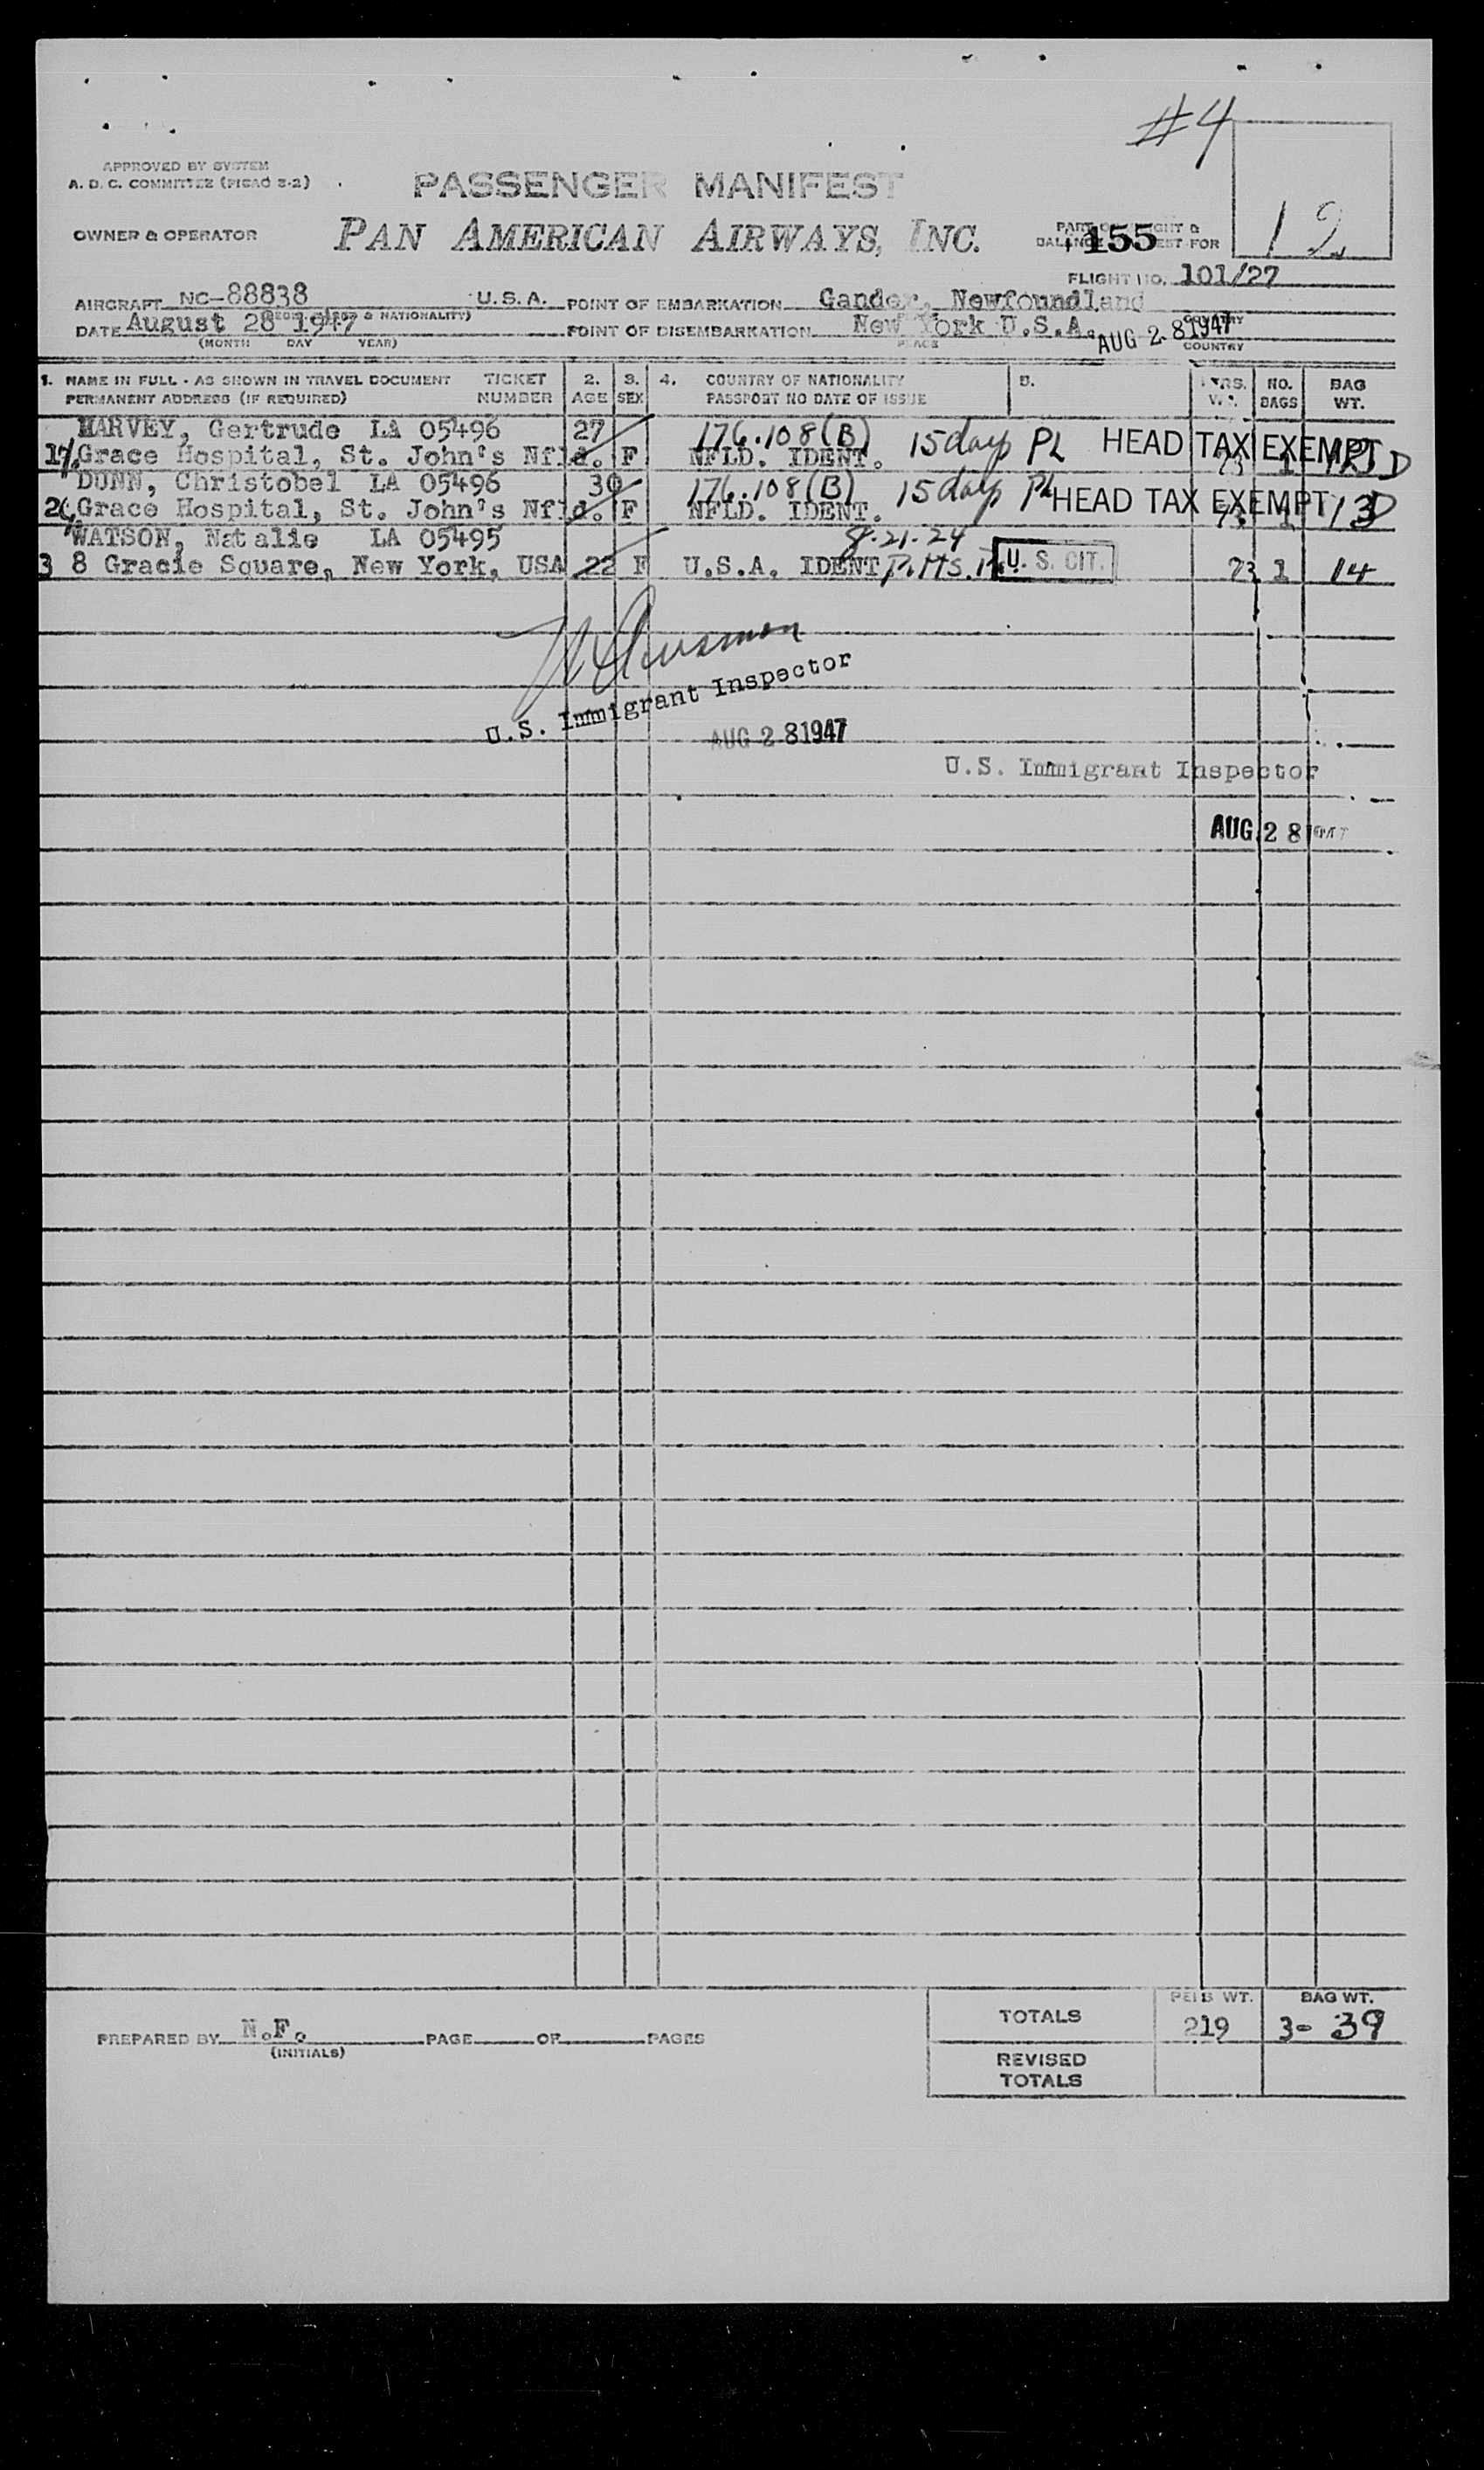 #4
APPROVED BY SYSTEM
A. D. C. COMMITTEE (PICAO 3-2)
PASSENGER MANIFEST
12
OWNER & OPERATOR
PAN AMERICAN AIRWAYS, INC.
155
FOR
FLIGHT NO. 101/27
AIRCRAFT NC-88838 U.S.A. POINT OF EMBARKATION Gander, Newfoundland
& NATIONALITY)
DATE August 28 1947 POINT OF DISEMBARKATION New York U.S.A. AUG 28 1947
(MONTH DAY YEAR) PLACE COUNTRY
1. NAME IN FULL - AS SHOWN IN TRAVEL DOCUMENT TICKET 2. 3. 4. COUNTRY OF NATIONALITY 5. NO. BAG
PERMANENT ADDRESS (IF REQUIRED) NUMBER AGE SEX PASSPORT NO DATE OF ISSUE BAGS WT.
HARVEY, Gertrude LA 05496 27 176.108(B) 15 days PL HEAD TAX EXEMPT
1 Grace Hospital, St. John's Nfld. F NFLD. IDENT. 73 1 12 D
DUNN, Christobel LA 05496 30 176.108(B) 15 days PL HEAD TAX EXEMPT
2 Grace Hospital, St. John's Nfld. F NFLD. IDENT. 1 13 D
WATSON, Natalie LA 05495 8-21-24
3 8 Gracie Square, New York, USA 22 F U.S.A. IDENT Pitts. Pa. U. S. CIT. 73 1 14
U.S. Immigrant Inspector
AUG 28 1947
U.S. Immigrant Inspector
AUG 28 1947
PREPARED BY N.F. PAGE OF PAGES
(INITIALS)
TOTALS PERS WT. 219 BAG WT. 3- 39
REVISED
TOTALS